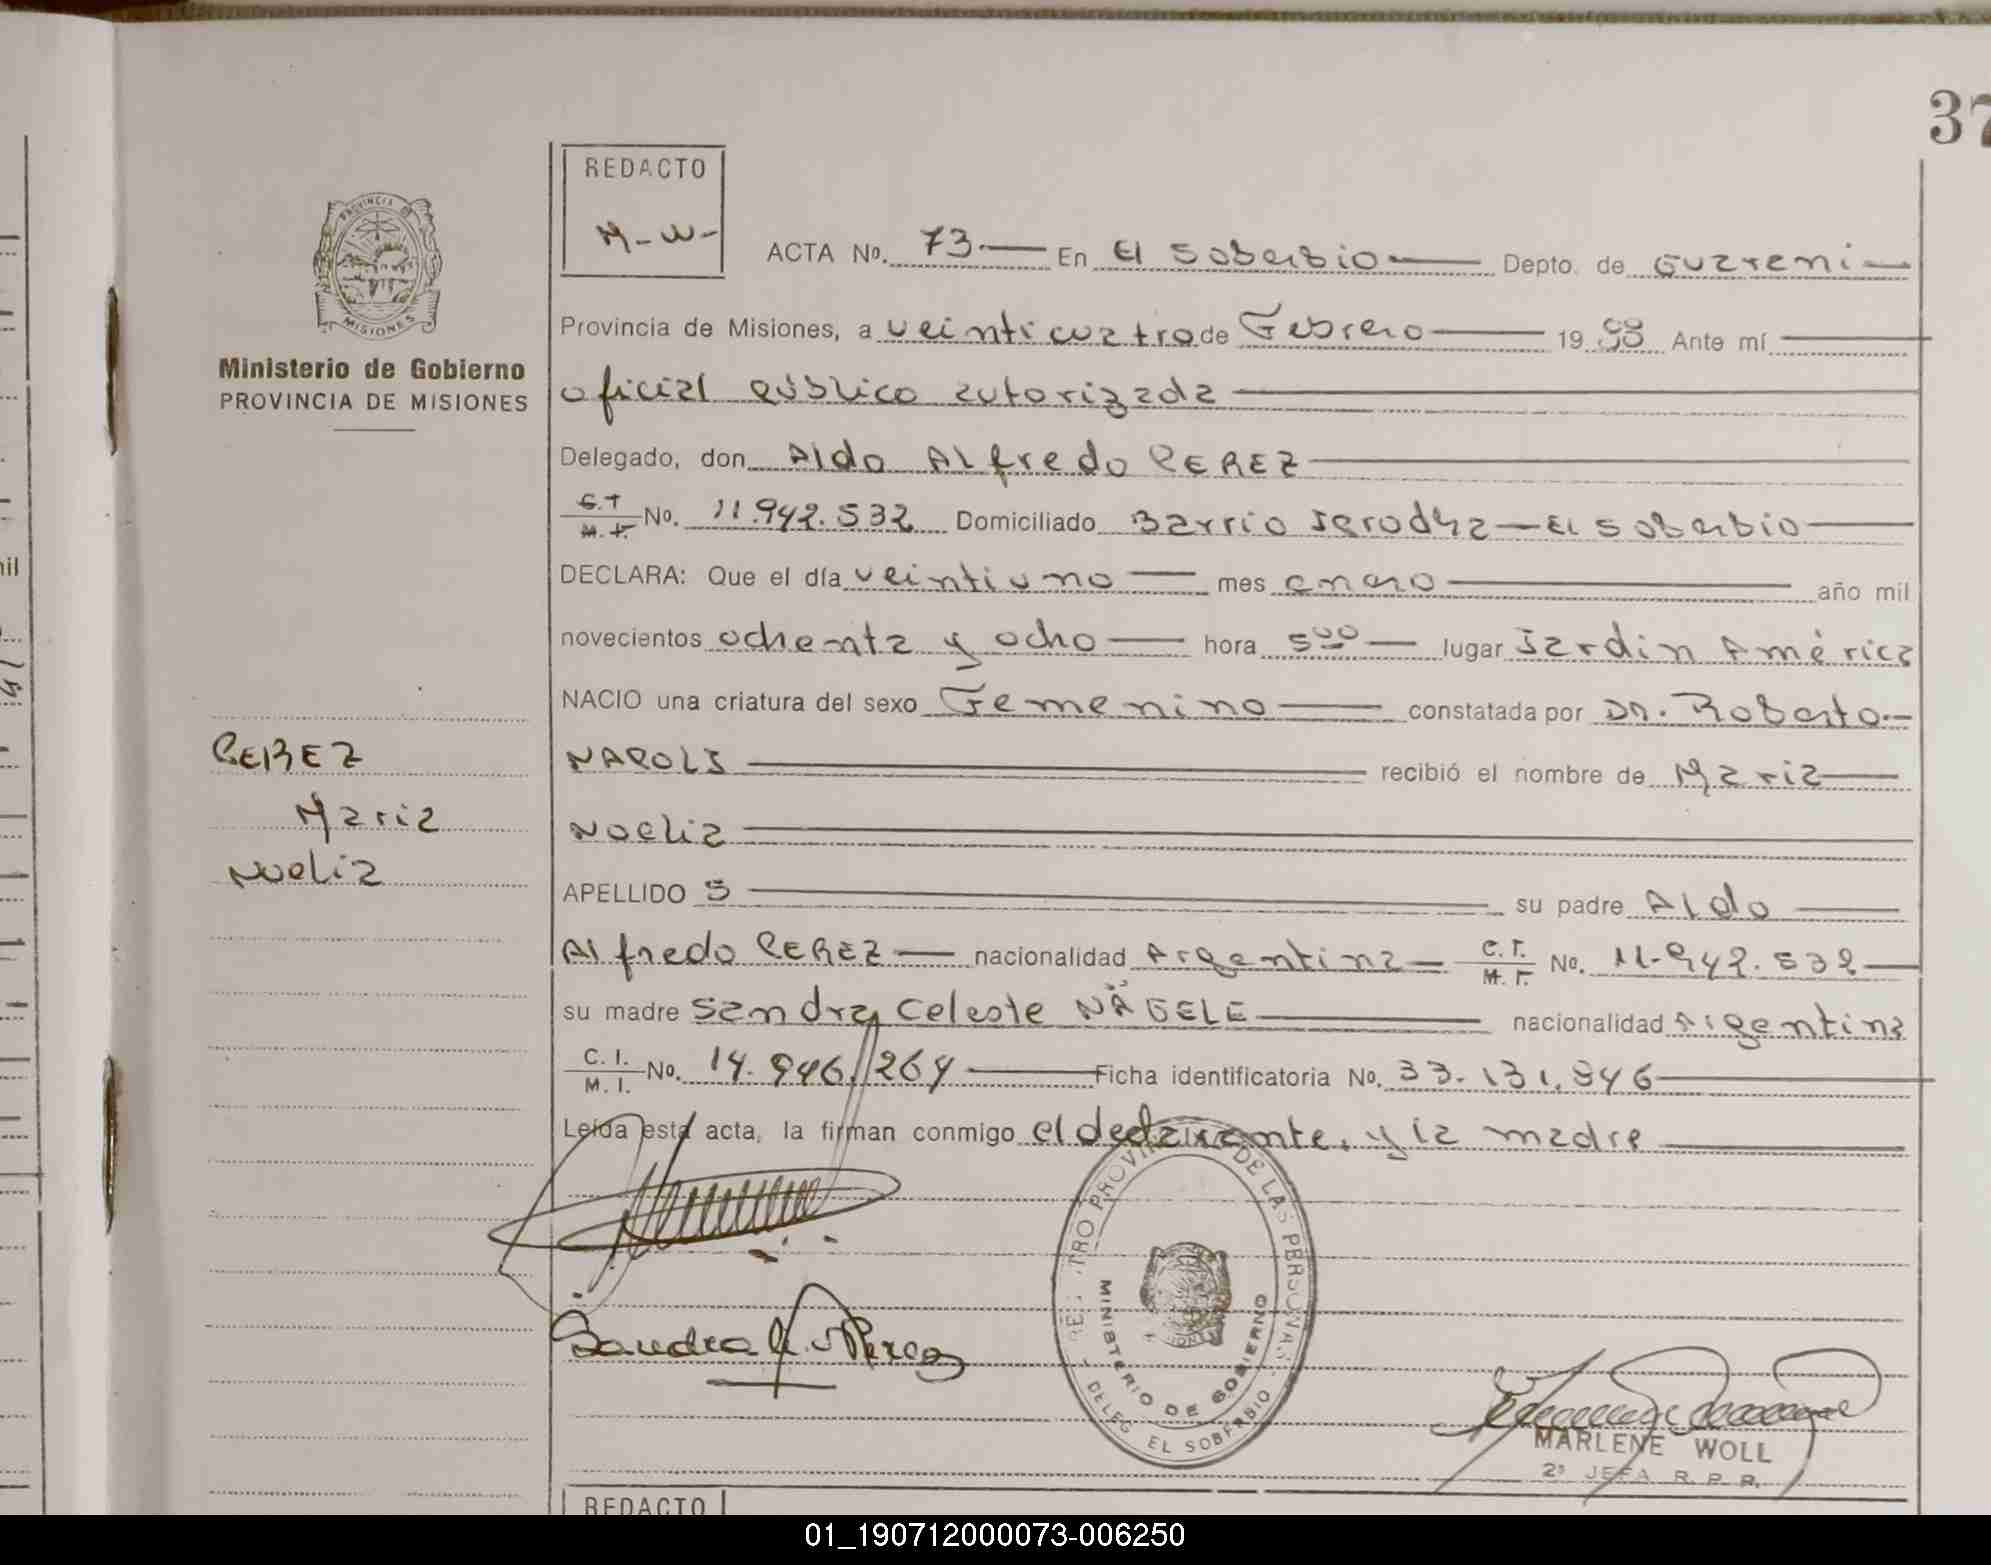 37
REDACTO
M-W-
ACTA No. 73 En El Soberbio Depto. de Guarani
Provincia de Misiones, a veinticuatro de Febrero 19 88 Ante mí
oficial público autorizada
Delegado, don Aldo Alfredo PEREZ
C.I. M.I. No. 11.942.532 Domiciliado Barrio - El Soberbio
DECLARA: Que el día veintiuno mes enero año mil
novecientos ochenta y ocho hora 5 00 lugar Jardin América
NACIO una criatura del sexo Femenino constatada por Dr. Roberto
NAPOLI recibió el nombre de Maria
Noelia
APELLIDO su padre Aldo
Alfredo PEREZ nacionalidad Argentina C.I. M.I. No. 11.942.532
su madre Sandra Celeste NÄGELE nacionalidad Argentina
C.I. M.I. No. 14.946.264 Ficha identificatoria No. 33.131.846
Leída esta acta, la firman conmigo el declarante, y la madre
PROVINCIA DE MISIONES
Ministerio de Gobierno
PROVINCIA DE MISIONES
PEREZ
Maria
Noelia
Sandra N. Perez
DE LAS PERSONAS
MINISTERIO DE GOBIERNO
DELEG EL SOBERBIO
MARLENE WOLL
2º JEFA R.P.P.
REDACTO
nil
01_190712000073-006250